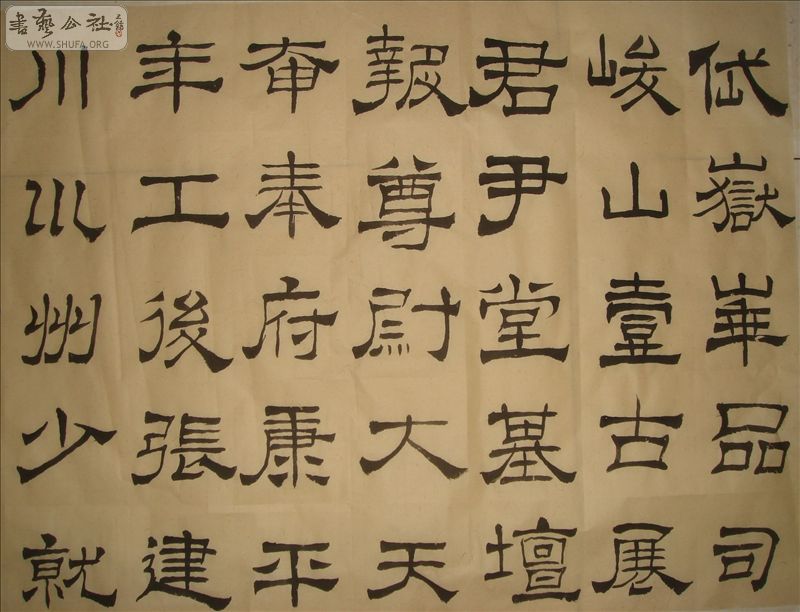 岱嶽華品司
峻山壹古展
君尹堂墓壇
報尊尉大天
奋奉府康平
年工後張建
川川州少就
書藝公社
WWW.SHUFA.ORG